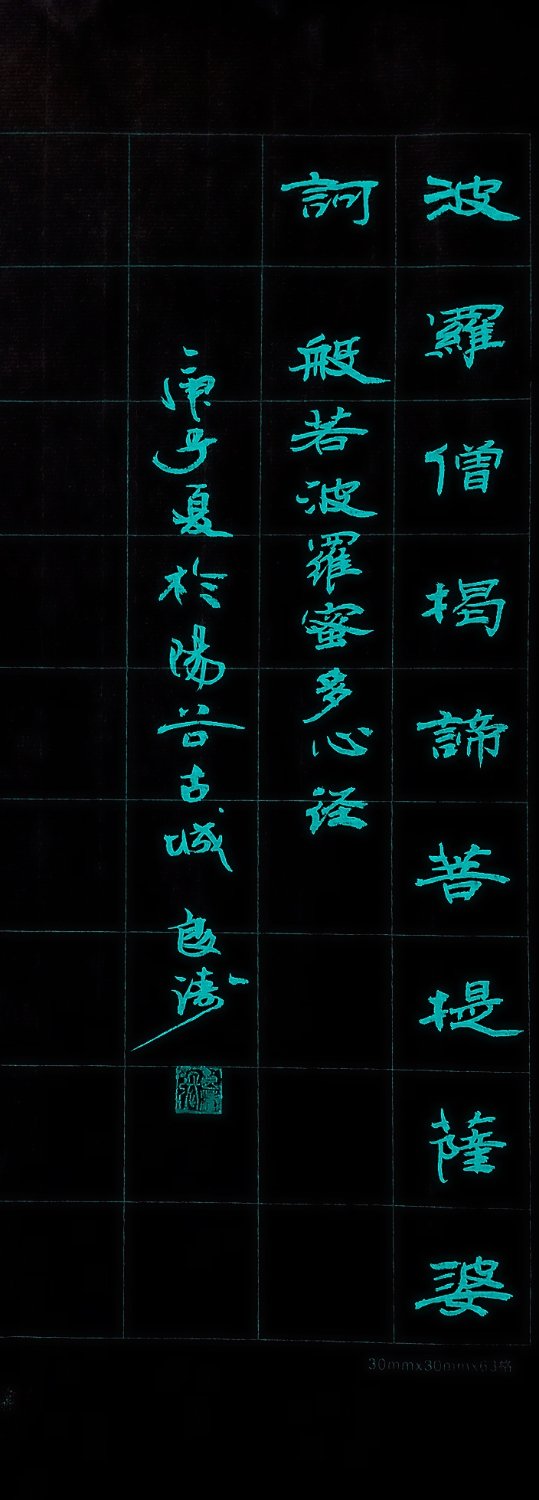 波羅僧揭諦菩提薩婆
訶
般若波羅蜜多心经
庚子夏於陽谷古城 良涛
30mmx30mmx63格